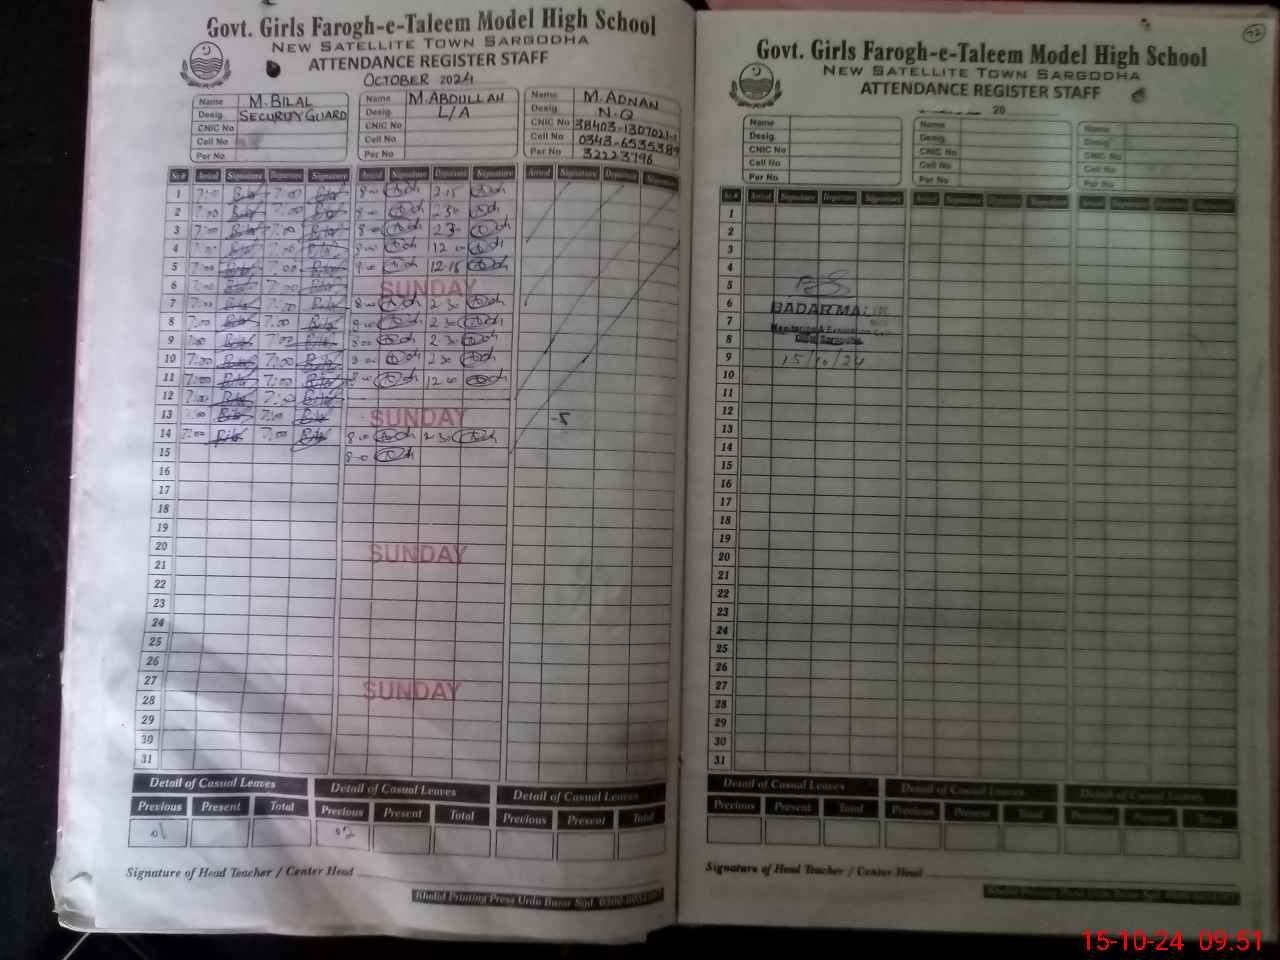 Govt. Girls Farogh-e-Taleem Model High School
NEW SATELLITE TOWN SARGODHA
ATTENDANCE REGISTER STAFF
OCTOBER 2024
Name M.BILAL
Desig. SECURITY GUARD
CNIC No
Cell No
Per No
Name M.ABDULLAH
Desig. L/A
CNIC No
Cell No
Per No
Name M.ADNAN
Desig. N-Q
CNIC No 38403-1307021-1
Cell No 0343-6535389
Per No 32223796
Sr.# Arival Signature Departure Signature Arival Signature Departure Signature Arival Signature Departure Signature
1 7:00 7:00 8-00 2-15
2 7:00 7:00 8-00 2 30
3 7:00 7:00 8-00 2 30
4 7:00 7:00 8-00 12 00
5 7:00 7:00 8-00 12-15
6 7:00 7:00 SUNDAY
7 7:00 7:00 8-00 2 30
8 7:00 7:00 8-00 2 30
9 7:00 7:00 8-00 2-30
10 7:00 7:00 8-00 2 30
11 7:00 7:00 8-00 12 00
12 7:00 7:00
13 7:00 7:00 SUNDAY
14 7:00 7:00 8-00 2 30
15 8-00
16
17
18
19
20 SUNDAY
21
22
23
24
25
26
27 SUNDAY
28
29
30
31
Detail of Casual Leaves Detail of Casual Leaves Detail of Casual Leaves
Previous Present Total Previous Present Total Previous Present Total
01 02
Signature of Head Teacher / Center Head
Khalid Printing Press Urdu Bazar Sgd.
72
Govt. Girls Farogh-e-Taleem Model High School
NEW SATELLITE TOWN SARGODHA
ATTENDANCE REGISTER STAFF
20
Name
Desig.
CNIC No
Cell No
Per No
Name
Desig.
CNIC No
Cell No
Per No
Name
Desig.
CNIC No
Cell No
Per No
Sr.# Arival Signature Departure Signature Arival Signature Departure Signature Arival Signature Departure Signature
1
2
3
4
5
6 BADAR
7
8
9 15/10/24
10
11
12
13
14
15
16
17
18
19
20
21
22
23
24
25
26
27
28
29
30
31
Detail of Casual Leaves Detail of Casual Leaves Detail of Casual Leaves
Previous Present Total Previous Present Total Previous Present Total
Signature of Head Teacher / Center Head
15-10-24 09:51